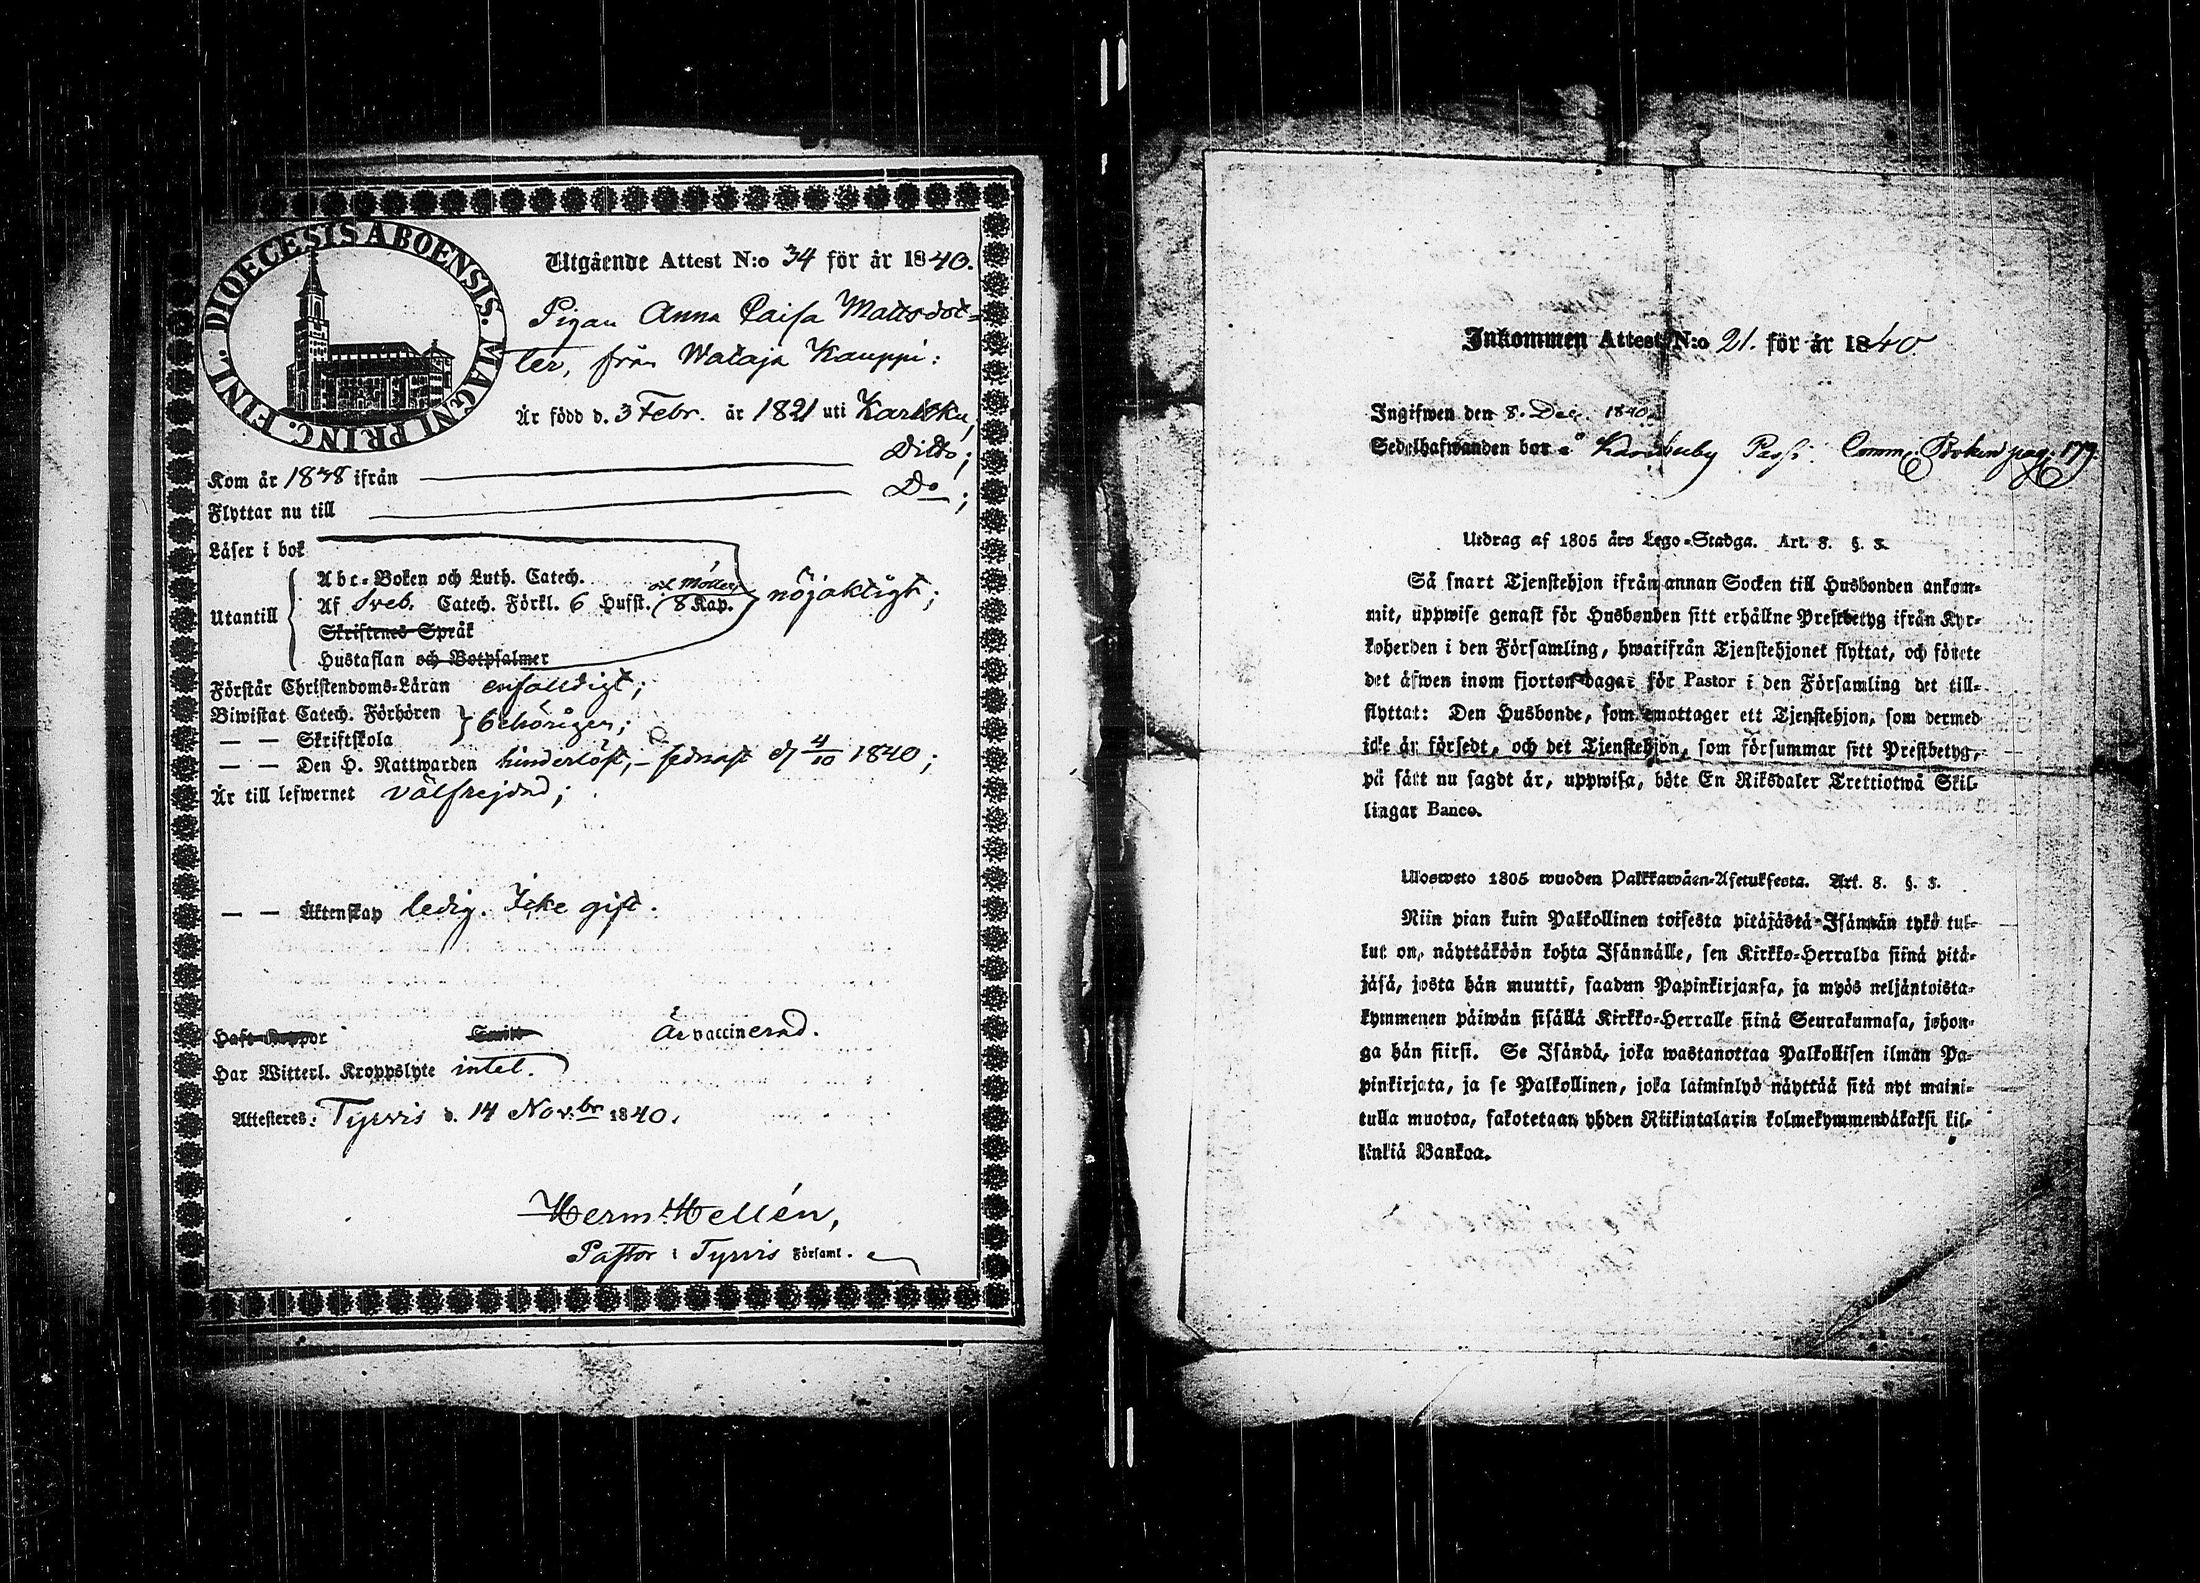 DIOECESIS ABOENSIS. MAGNI PRINC. FINL.
Utgående Attest N:o 34 för år 1840.
Pigan Anna Caisa Mattsdot-
ter, från Wataja Kauppi:
Är född d. 3 Febr. år 1821 uti Karkku,
Kom år 1838 ifrån Dito;
Flyttar nu till Do;
Läser i bok
Utantill
Abc-Boken och Luth. Catech.
Af Sveb. Catech. Förkl. 6 Hufst. 8 Kap. nöjaktigt;
Skriftenes Språk
Hustaflan och Botpsalmer
Förstår Christendoms-Läran enfalldigt;
Biwistat Catech. Förhören
— — Skriftskola behörigen;
— — Den H. Nattwarden hinderlöst, – sednast d 4/10 1840;
Är till lefwernet välfrejdad;
— — Äktenskap ledig. Icke gift.
Haft Koppor Är vaccinerad.
Har Witterl. Kroppslyte intet.
Attesteres: Tyrvis d. 14 Nov:br 1840.
Herm. Hellén,
Pastor i Tyrvis Församl.
Inkommen Attest N:o 21. för år 1840.
Ingifwen den 8. Dec. 1840.
Sedelhafwanden bor å Karkuby Passi. Comm. Boken pag: 177.
Utdrag af 1805 års Lego-Stadga. Art. 8. §. 3.
Så snart Tjenstehjon ifrån annan Socken till Husbonden ankom-
mit, uppwise genast för Husbonden sitt erhållne Prestbetyg ifrån Kyr-
koherden i den Församling, hwarifrån Tjenstehjonet flyttat, och förete
det äfwen inom fjorton dagar för Pastor i den Församling det till-
flyttat: Den Husbonde, som emottager ett Tjenstehjon, som dermed
icke är försedt, och det Tjenstehjon, som försummar sitt Prestbetyg,
på sätt nu sagdt är, uppwisa, böte En Riksdaler Trettiotwå Skil-
lingar Banco.
Ulosweto 1805 wuoden Palkkawäen-Asetuksesta. Art. 8. §. 3.
Niin pian kuin Palkollinen toisesta pitäjästä Isännän tykö tul-
lut on, näyttäköön kohta Isännälle, sen Kirkko-Herralda siinä pitä-
jäsä, josta hän muutti, saadun Papinkirjansa, ja myös neljäntoista-
kymmenen päiwän sisällä Kirkko-Herralle siinä Seurakunnasa, johon-
ga hän siirsi. Se Isändä, joka wastanottaa Palkollisen ilman Pa-
pinkirjata, ja se Palkollinen, joka laiminlyö näyttää sitä nyt maini-
tulla muotoa, sakotetaan yhden Riikintalarin kolmekymmendäkaksi kil-
linkiä Bankoa.